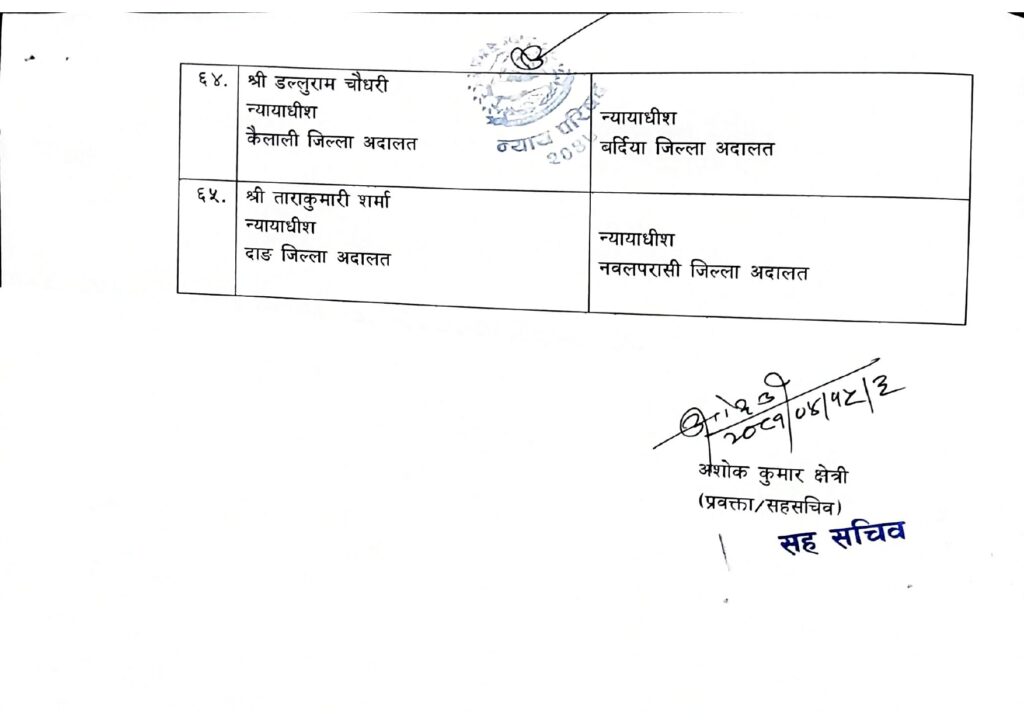 ६४. श्री डल्लुराम चौधरी
न्यायाधीश
कैलाली जिल्ला अदालत
न्यायाधीश
बर्दिया जिल्ला अदालत
न्याय परिषद
६५. श्री ताराकुमारी शर्मा
न्यायाधीश
दाङ जिल्ला अदालत
न्यायाधीश
नवलपरासी जिल्ला अदालत
२०८१/०४/१८/३
अशोक कुमार क्षेत्री
(प्रवक्ता/सहसचिव)
सह सचिव